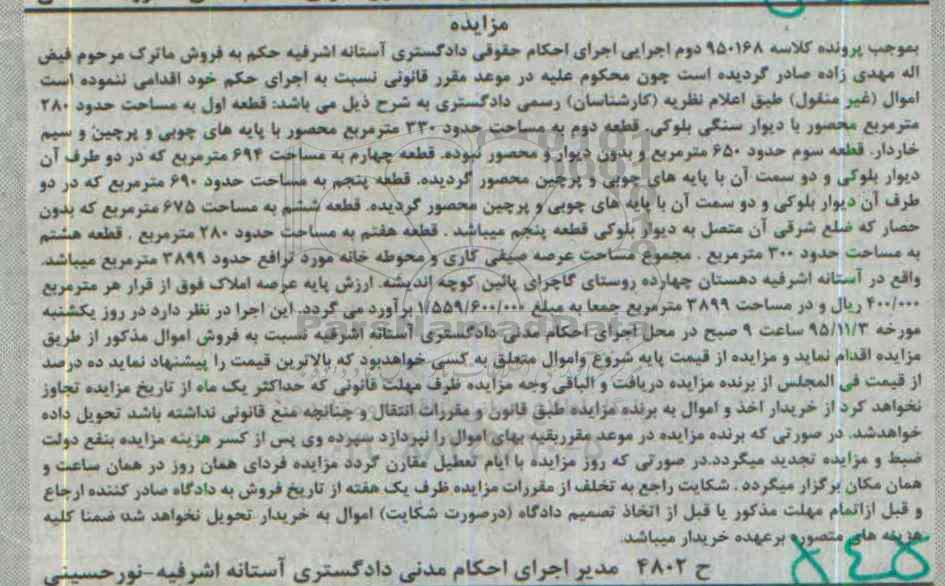 مزایده
بموجب پرونده کلاسه ۹۵۰۱۶۸ دوم اجرایی اجرای احکام حقوقی دادگستری آستانه اشرفیه حکم به فروش ماترک مرحوم فیض
اله مهدی زاده صادر گردیده است چون محکوم علیه در موعد مقرر قانونی نسبت به اجرای حکم خود اقدامی ننموده است
اموال (غیر منقول) طبق اعلام نظریه (کارشناسان) رسمی دادگستری به شرح ذیل می باشد: قطعه اول به مساحت حدود ۲۸۰
مترمربع محصور با دیوار سنگی بلوکی. قطعه دوم به مساحت حدود ۳۳۰ مترمربع محصور با پایه های چوبی و پرچین و سیم
خاردار. قطعه سوم حدود ۶۵۰ مترمربع و بدون دیوار و محصور نبوده. قطعه چهارم به مساحت ۶۹۴ مترمربع که در دو طرف آن
دیوار بلوکی و دو سمت آن با پایه های چوبی و پرچین محصور گردیده. قطعه پنجم به مساحت حدود ۶۹۰ مترمربع که در دو
طرف آن دیوار بلوکی و دو سمت آن با پایه های چوبی و پرچین محصور گردیده. قطعه ششم به مساحت ۶۷۵ مترمربع که بدون
حصار که ضلع شرقی آن متصل به دیوار بلوکی قطعه پنجم میباشد . قطعه هفتم به مساحت حدود ۲۸۰ مترمربع . قطعه هشتم
به مساحت حدود ۳۰۰ مترمربع . مجموع مساحت عرصه صیفی کاری و محوطه خانه مورد ترافع حدود ۳۸۹۹ مترمربع میباشد.
واقع در آستانه اشرفیه دهستان چهارده روستای گاچرای پائین کوچه اندیشه. ارزش پایه عرصه املاک فوق از قرار هر مترمربع
۴۰۰/۰۰۰ ریال و در مساحت ۳۸۹۹ مترمربع جمعا به مبلغ ۱/۵۵۹/۶۰۰/۰۰۰ برآورد می گردد. این اجرا در نظر دارد در روز یکشنبه
مورخه ۹۵/۱۱/۳ ساعت ۹ صبح در محل اجرای احکام مدنی دادگستری آستانه اشرفیه نسبت به فروش اموال مذکور از طریق
مزایده اقدام نماید و مزایده از قیمت پایه شروع واموال متعلق به کسی خواهدبود که بالاترین قیمت را پیشنهاد نماید ده درصد
از قیمت فی المجلس از برنده مزایده دریافت و الباقی وجه مزایده ظرف مهلت قانونی که حداکثر یک ماه از تاریخ مزایده تجاوز
نخواهد کرد از خریدار اخذ و اموال به برنده مزایده طبق قانون و مقررات انتقال و چنانچه منع قانونی نداشته باشد تحویل داده
خواهدشد. در صورتی که برنده مزایده در موعد مقرربقیه بهای اموال را نپردازد سپرده وی پس از کسر هزینه مزایده بنفع دولت
ضبط و مزایده تجدید میگردد.در صورتی که روز مزایده با ایام تعطیل مقارن گردد مزایده فردای همان روز در همان ساعت و
همان مکان برگزار میگردد . شکایت راجع به تخلف از مقررات مزایده ظرف یک هفته از تاریخ فروش به دادگاه صادر کننده ارجاع
و قبل ازاتمام مهلت مذکور یا قبل از اتخاذ تصمیم دادگاه (درصورت شکایت) اموال به خریدار تحویل نخواهد شد ضمنا کلیه
هزینه های متصوره برعهده خریدار میباشد.
ح ۴۸۰۲ مدیر اجرای احکام مدنی دادگستری آستانه اشرفیه-نورحسینی
ParsNamadData